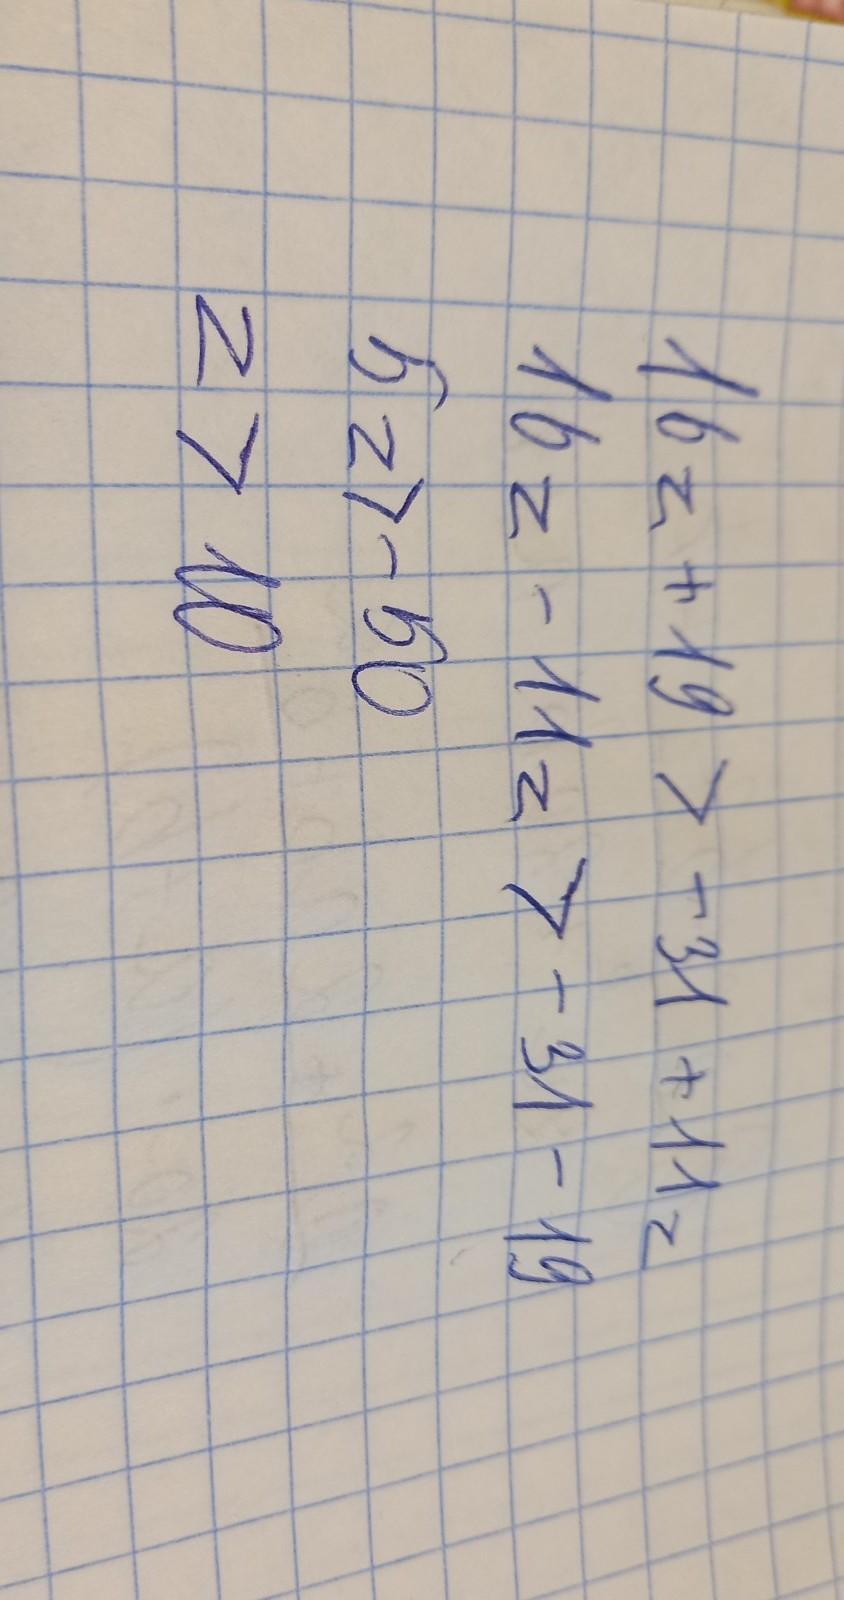 16z + 19 > -31 + 11z
16z - 11z > -31 - 19
5z > -50
z > 10